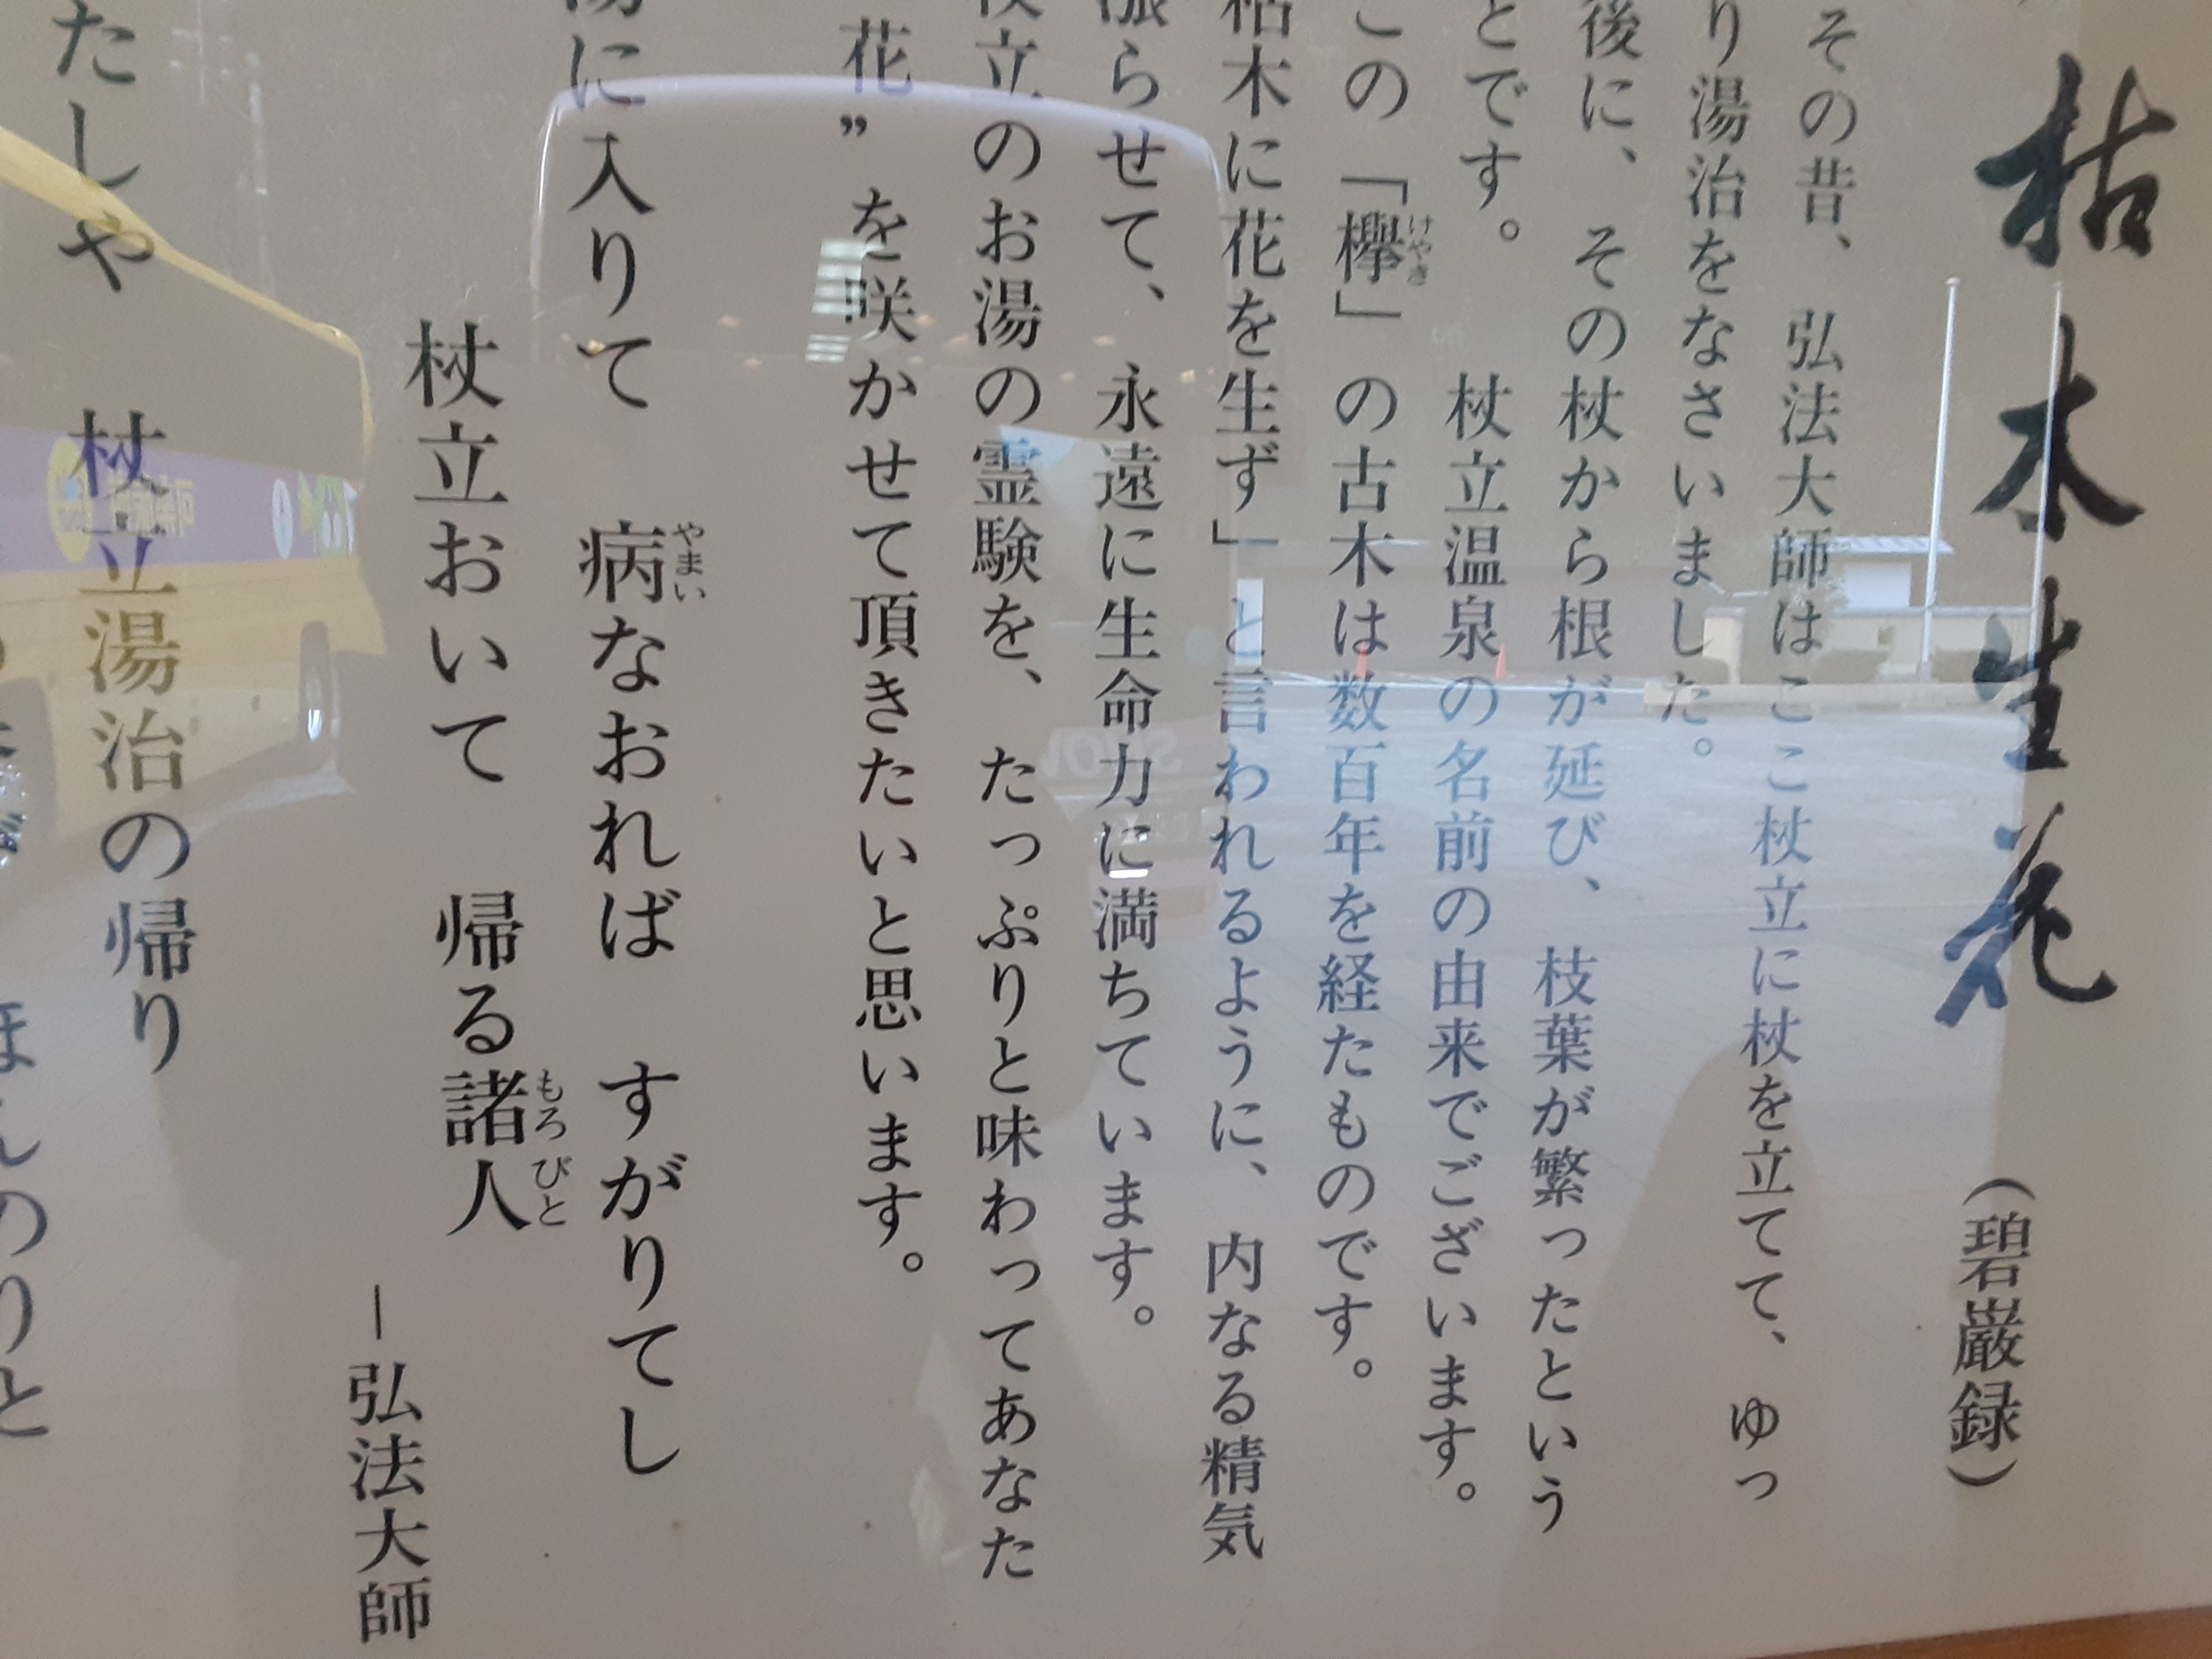 枯木生花（碧巌録）
その昔、弘法大師はここ杖立に杖を立てて、ゆっ
り湯治をなさいました。
後に、その杖から根が延び、枝葉が繁ったという
とです。　杖立温泉の名前の由来でございます。
この「欅」の古木は数百年を経たものです。
けやき
枯木に花を生ず」と言われるように、内なる精気
漲らせて、永遠に生命力に満ちています。
杖立のお湯の霊験を、たっぷりと味わってあなた
花”を咲かせて頂きたいと思います。
湯に入りて　病なおれば　すがりてし
やまい
杖立おいて　帰る諸人
もろびと
―弘法大師
たしや　杖立湯治の帰り